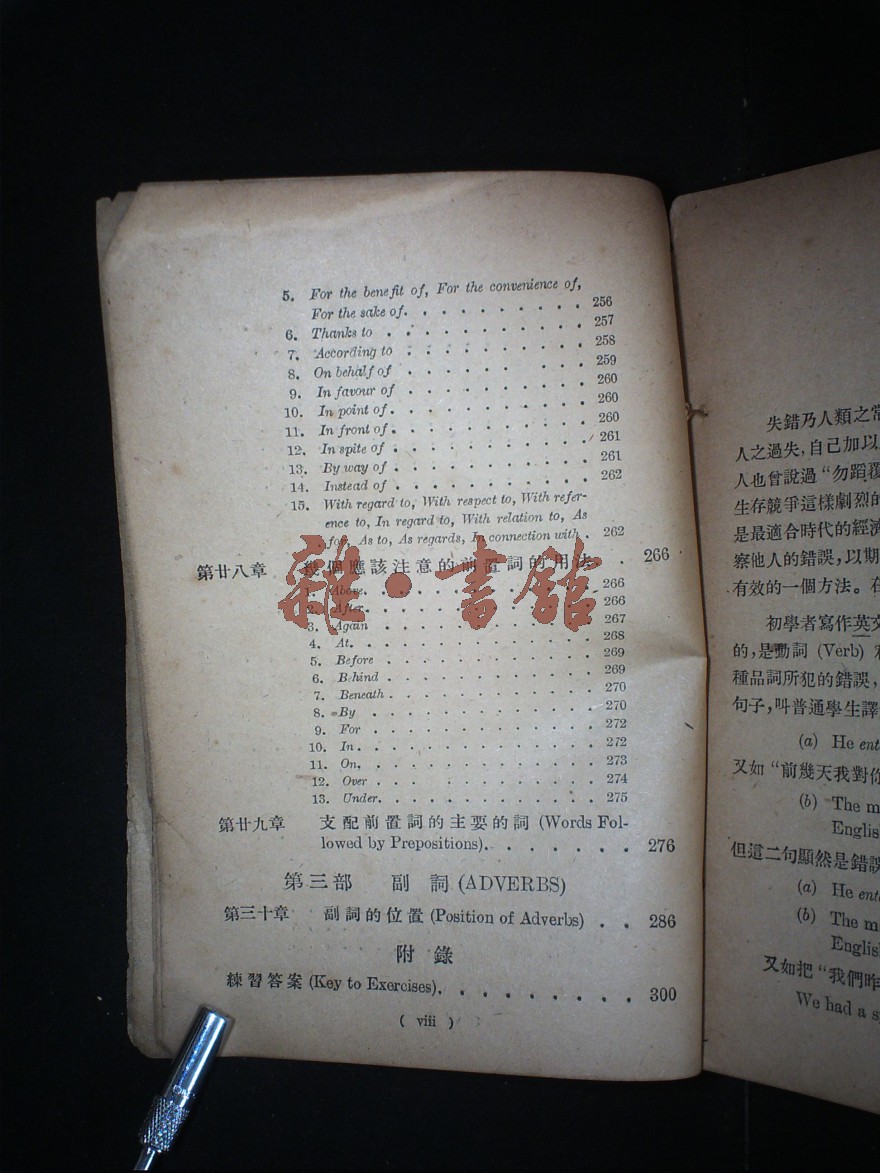 5. For the benefit of, For the convenience of,
For the sake of. . . . . . . . . . 256
6. Thanks to . . . . . . . . . . . 257
7. According to . . . . . . . . . . 258
8. On behalf of . . . . . . . . . 259
9. In favour of . . . . . . . . . . 260
10. In point of. . . . . . . . . . . 260
11. In front of. . . . . . . . . . . 260
12. In spite of . . . . . . . . . . . 261
13. By way of . . . . . . . . . . . 261
14. Instead of . . . . . . . . . . . 262
15. With regard to, With respect to, With refer-
ence to, In regard to, With relation to, As
for, As to, As regards, In connection with . 262
第廿八章 幾個應該注意的前置詞的用法 . 266
1. Above. . . . . . . . . . . . 266
2. After. . . . . . . . . . . . 266
3. Again . . . . . . . . . . . . 267
4. At. . . . . . . . . . . . . 268
5. Before . . . . . . . . . . . . 269
6. Behind . . . . . . . . . . . . 269
7. Beneath . . . . . . . . . . . . 270
8. By . . . . . . . . . . . . 270
9. For . . . . . . . . . . . . 272
10. In. . . . . . . . . . . . . 272
11. On. . . . . . . . . . . . . 273
12. Over . . . . . . . . . . . . 274
13. Under. . . . . . . . . . . . 275
第廿九章 支配前置詞的主要的詞 (Words Fol-
lowed by Prepositions). . . . . . . 276
第三部 副 詞 (ADVERBS)
第三十章 副詞的位置 (Position of Adverbs) . . 286
附 錄
練習答案 (Key to Exercises). . . . . . . . . 300
( viii )
雜·書館
失錯乃人類之常
人之過失,自己加以
人也曾說過“勿蹈覆
生存競爭這樣劇烈的
是最適合時代的經濟
察他人的錯誤,以期
有效的一個方法。在
初學者寫作英文
的,是動詞 (Verb)
種品詞所犯的錯誤,
句子,叫普通學生譯
(a) He ent
又如“前幾天我對你
(b) The m
Englis
但這二句顯然是錯誤
(a) He ente
(b) The m
English
又如把“我們昨
We had a s